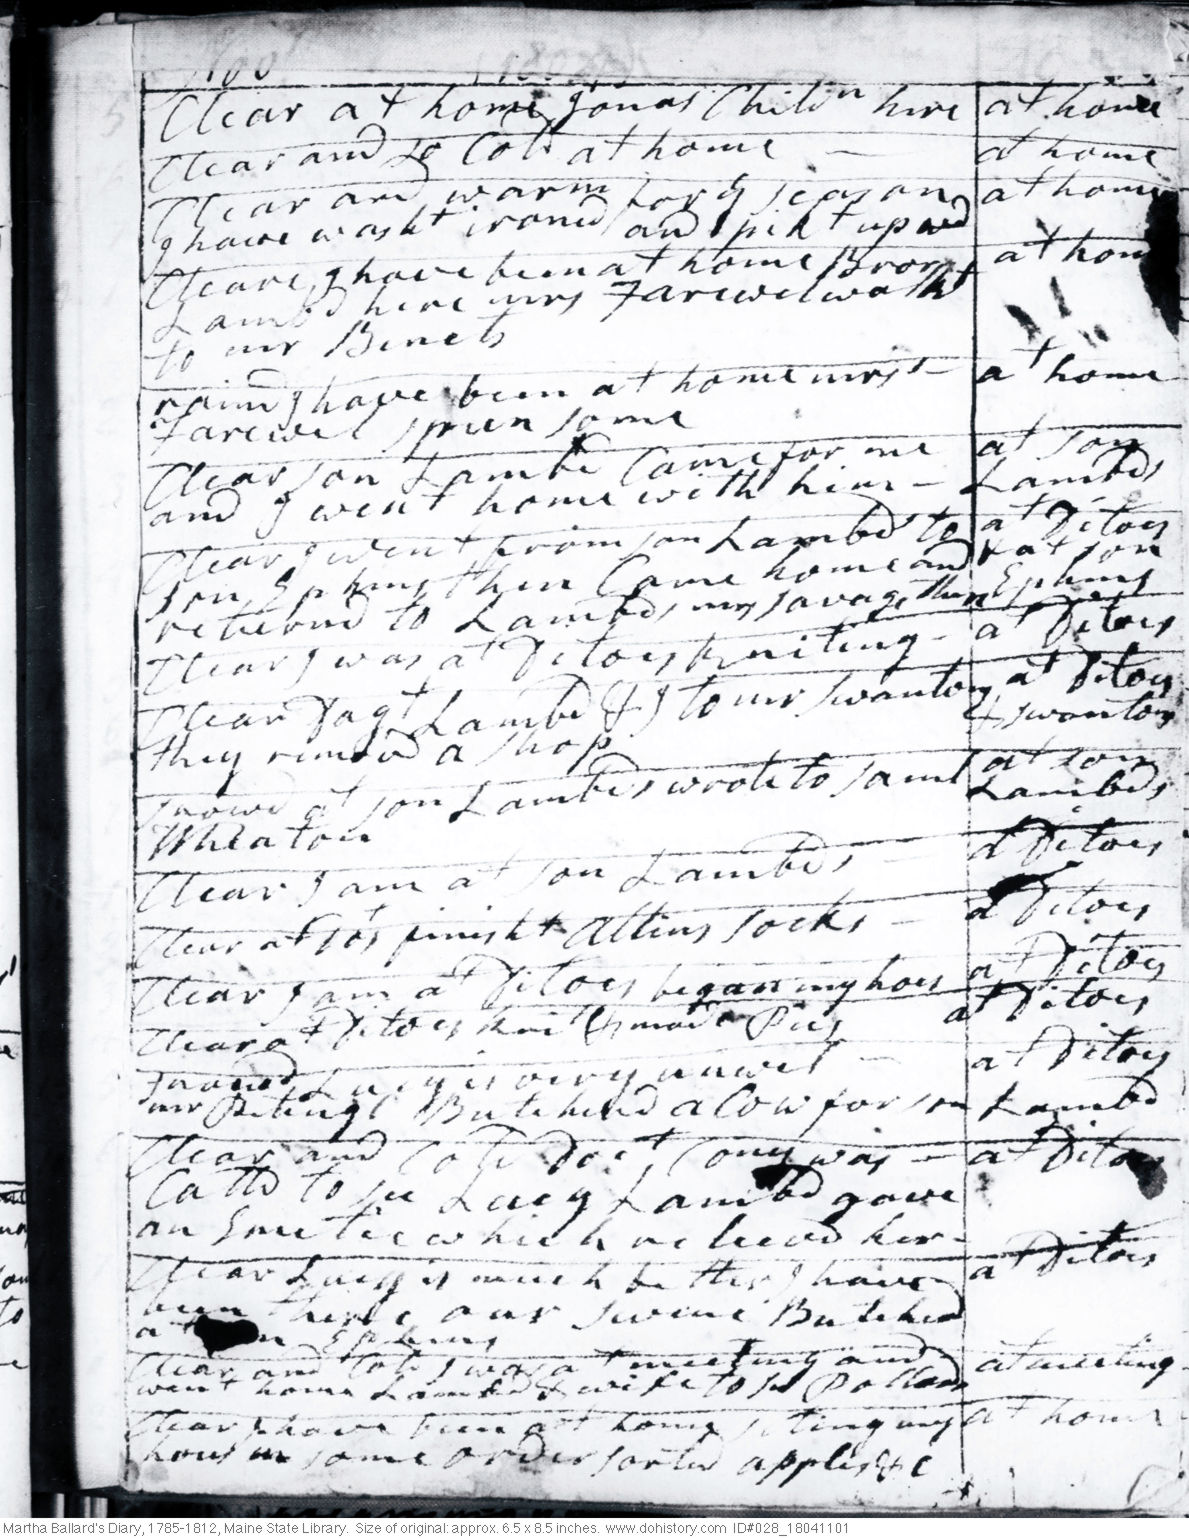 Clear at home Jonas Childn here at home
Clear and Cold at home — at home
Clear and warm for ye season at home
I have washt ironed and pikt up wd
Cleare, I have been at home Bror at home
Lambd here mrs Farewel washt
to mr Benets
raind I have been at home mrs — at home
Farewel spun some
Clear son Lambd Came for me at son
and I went home with him — Lambds
Clear I went from son Lambd to at Ditoes
son Ephms then Came home and & at son
returnd to Lambds mrs savage there Ephms
Clear I was at Ditoes kniting — at Ditoes
Clear Dagt Lambd & I to mr swantons at Ditoes
they removd a shop & swantons
snowd at son Lambds wrote to saml at son
Wheaton Lambds
Clear I am at son Lambds — at Ditoes
Clear at finisht Allins socks — at Ditoes
Clear I am at Ditoes began my hoes at Ditoes
Clear at Ditoes knit & made Pies at Ditoes
snowd, Lucy is very unwel — at Ditoes
mr Petingl Butcherd a Cow for son Lambd
Clear and Cold Doct Cony was — at Ditoes
Calld to see Lucy Lambd gave
an Emetic which releevd her —
Clear Lucy is much better I have at Ditoes
been there our swine Butcherd
at son Ephms
Clear and Cold I was at meeting and at meeting
went home Lambd & wife to se Pollard
Clear I have been at home seting my at home
hous in some order sorted apples &c
Martha Ballard's Diary, 1785-1812, Maine State Library. Size of original: approx. 6.5 x 8.5 inches. www.dohistory.com ID#028_18041101